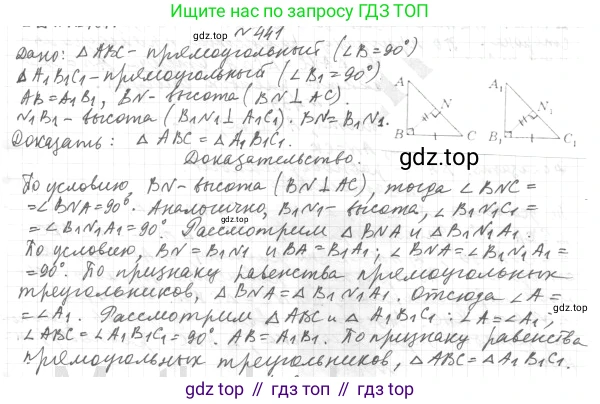 Ищите нас по запросу ГДЗ ТОП
№441
Дано: △ABC - прямоугольный (∠B=90°)
△A1B1C1 - прямоугольный (∠B1=90°)
AB=A1B1, BN - высота (BN⊥AC).
N1B1 - высота (B1N1⊥A1C1). BN=B1N1.
Доказать: △ABC=△A1B1C1.
A N B C
A1 N1 B1 C1
gdz.top
Доказательство.
По условию, BN - высота (BN⊥AC), тогда ∠BNC=
=∠BNA=90°. Аналогично, B1N1 - высота, ∠B1N1C1=
=∠B1N1A1=90°. Рассмотрим △BNA и △B1N1A1.
По условию, BN=B1N1 и BA=B1A1; ∠BNA=∠B1N1A1=
=90°. По признаку равенства прямоугольных
треугольников, △BNA=△B1N1A1. Отсюда ∠A=
=∠A1. Рассмотрим △ABC и △A1B1C1: ∠A=∠A1;
∠ABC=∠A1B1C1=90°. AB=A1B1. По признаку равенства
прямоугольных треугольников, △ABC=△A1B1C1.
gdz top // гдз топ // gdz.top